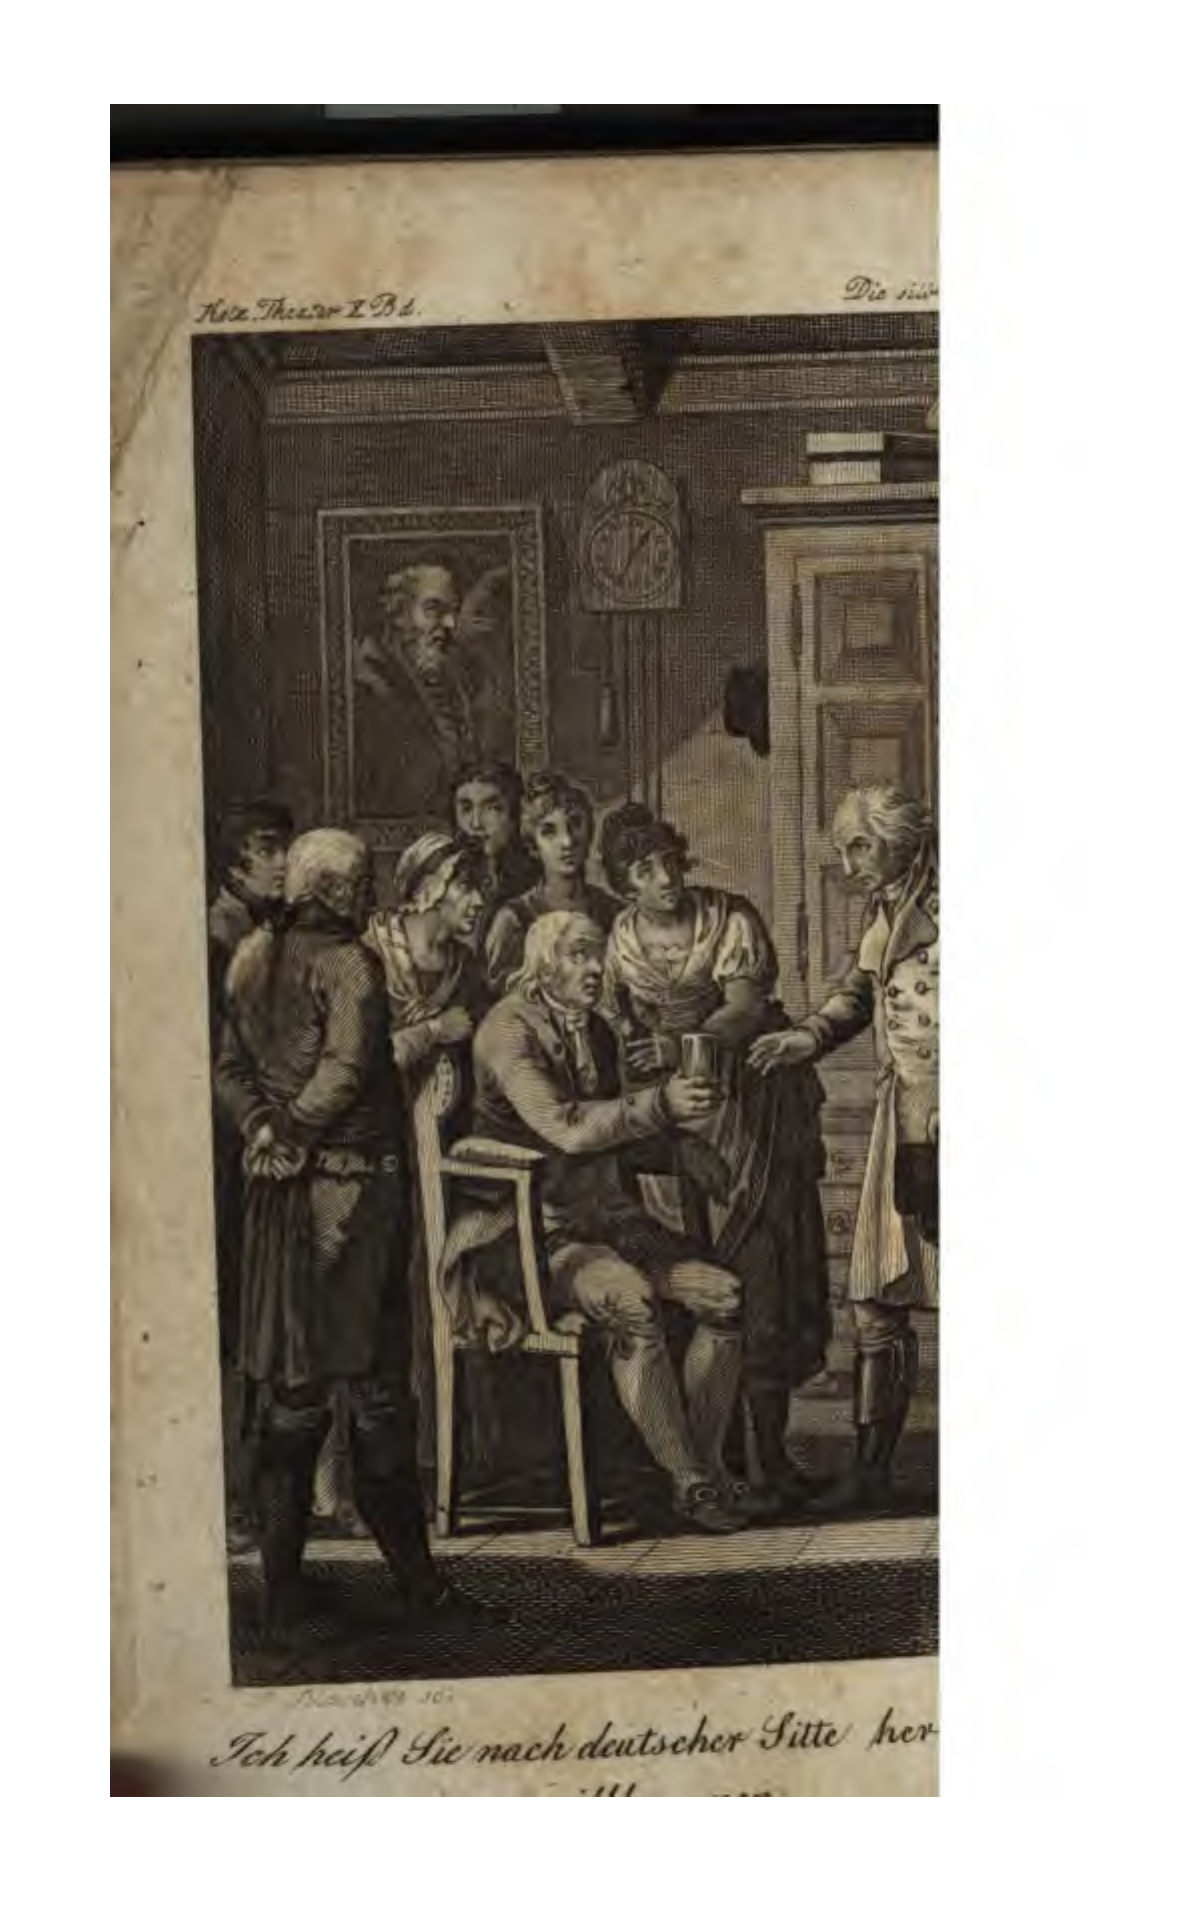 Kotz. Theater X Bd.
Die silb
Ich heiß Sie nach deutscher Sitte her